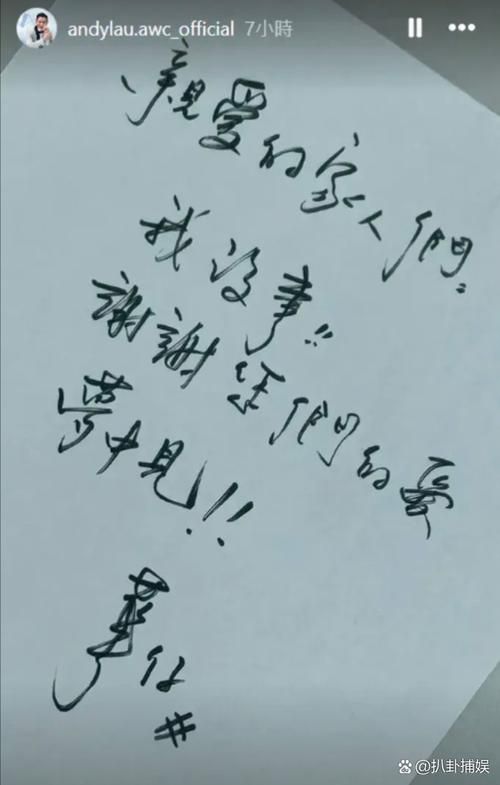 andylau.awc_official 7小時
親愛的家人們:
我沒事!!
謝謝你們的愛
夢中見!!
華仔
#
@扒卦捕娱